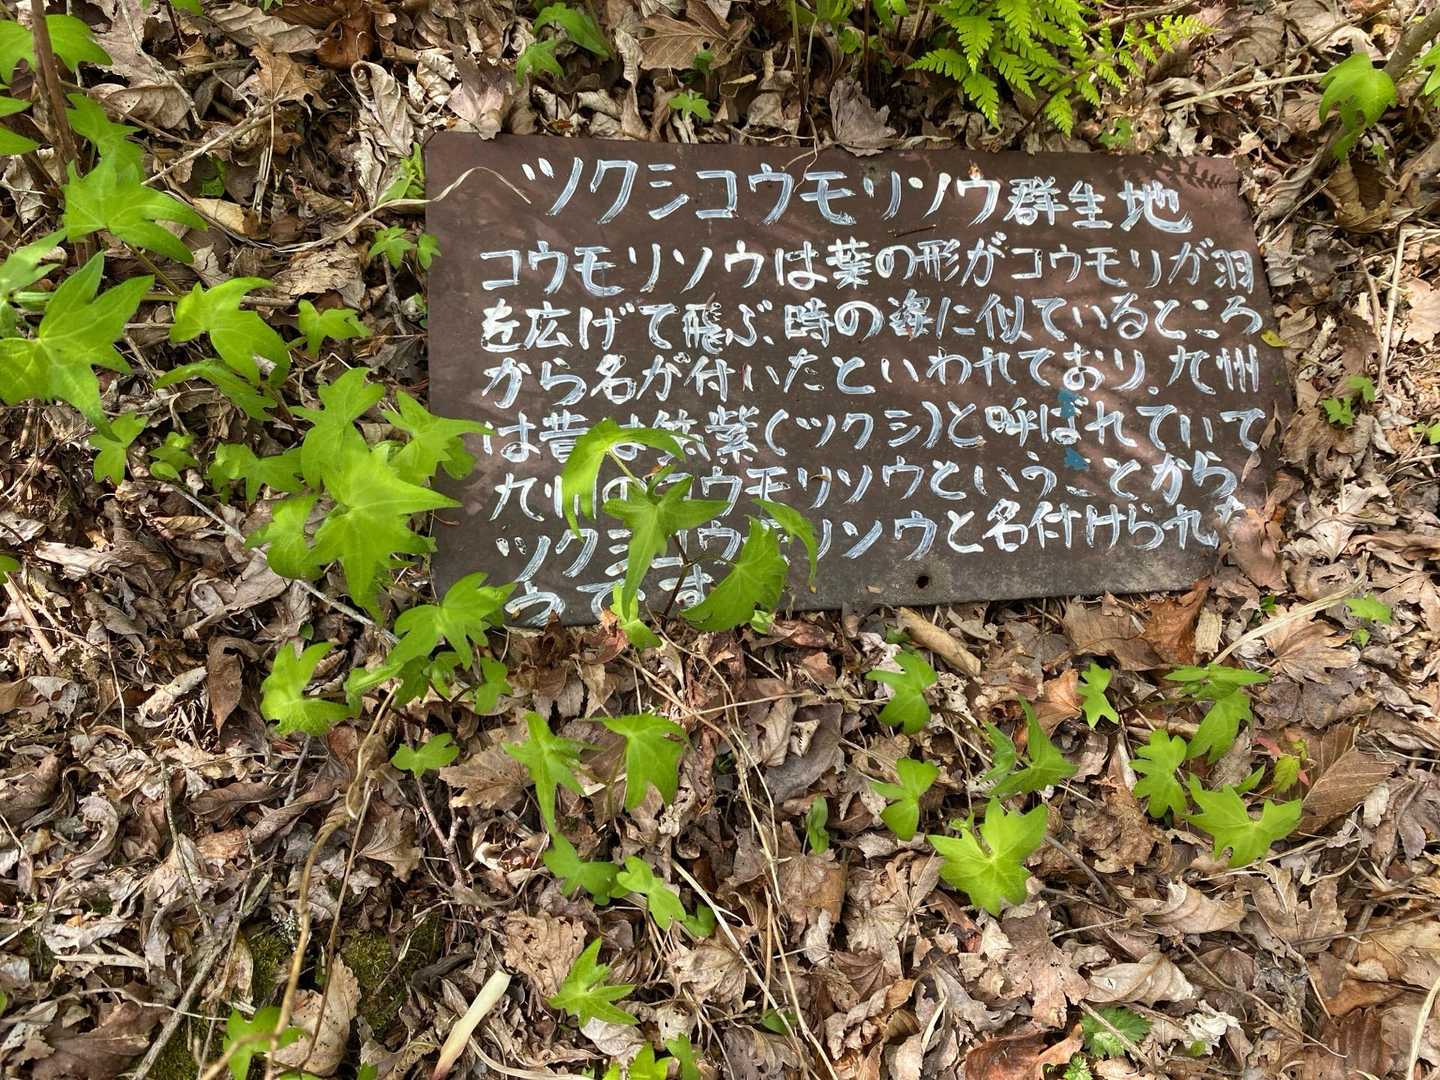 ツクシコウモリソウ群生地
コウモリソウは葉の形がコウモリが羽
を広げて飛ぶ時の姿に似ているところ
から名が付いたといわれており、九州
は昔は筑紫(ツクシ)と呼ばれていて
九州のコウモリソウということから
ツクシコウモリソウと名付けられた
うです